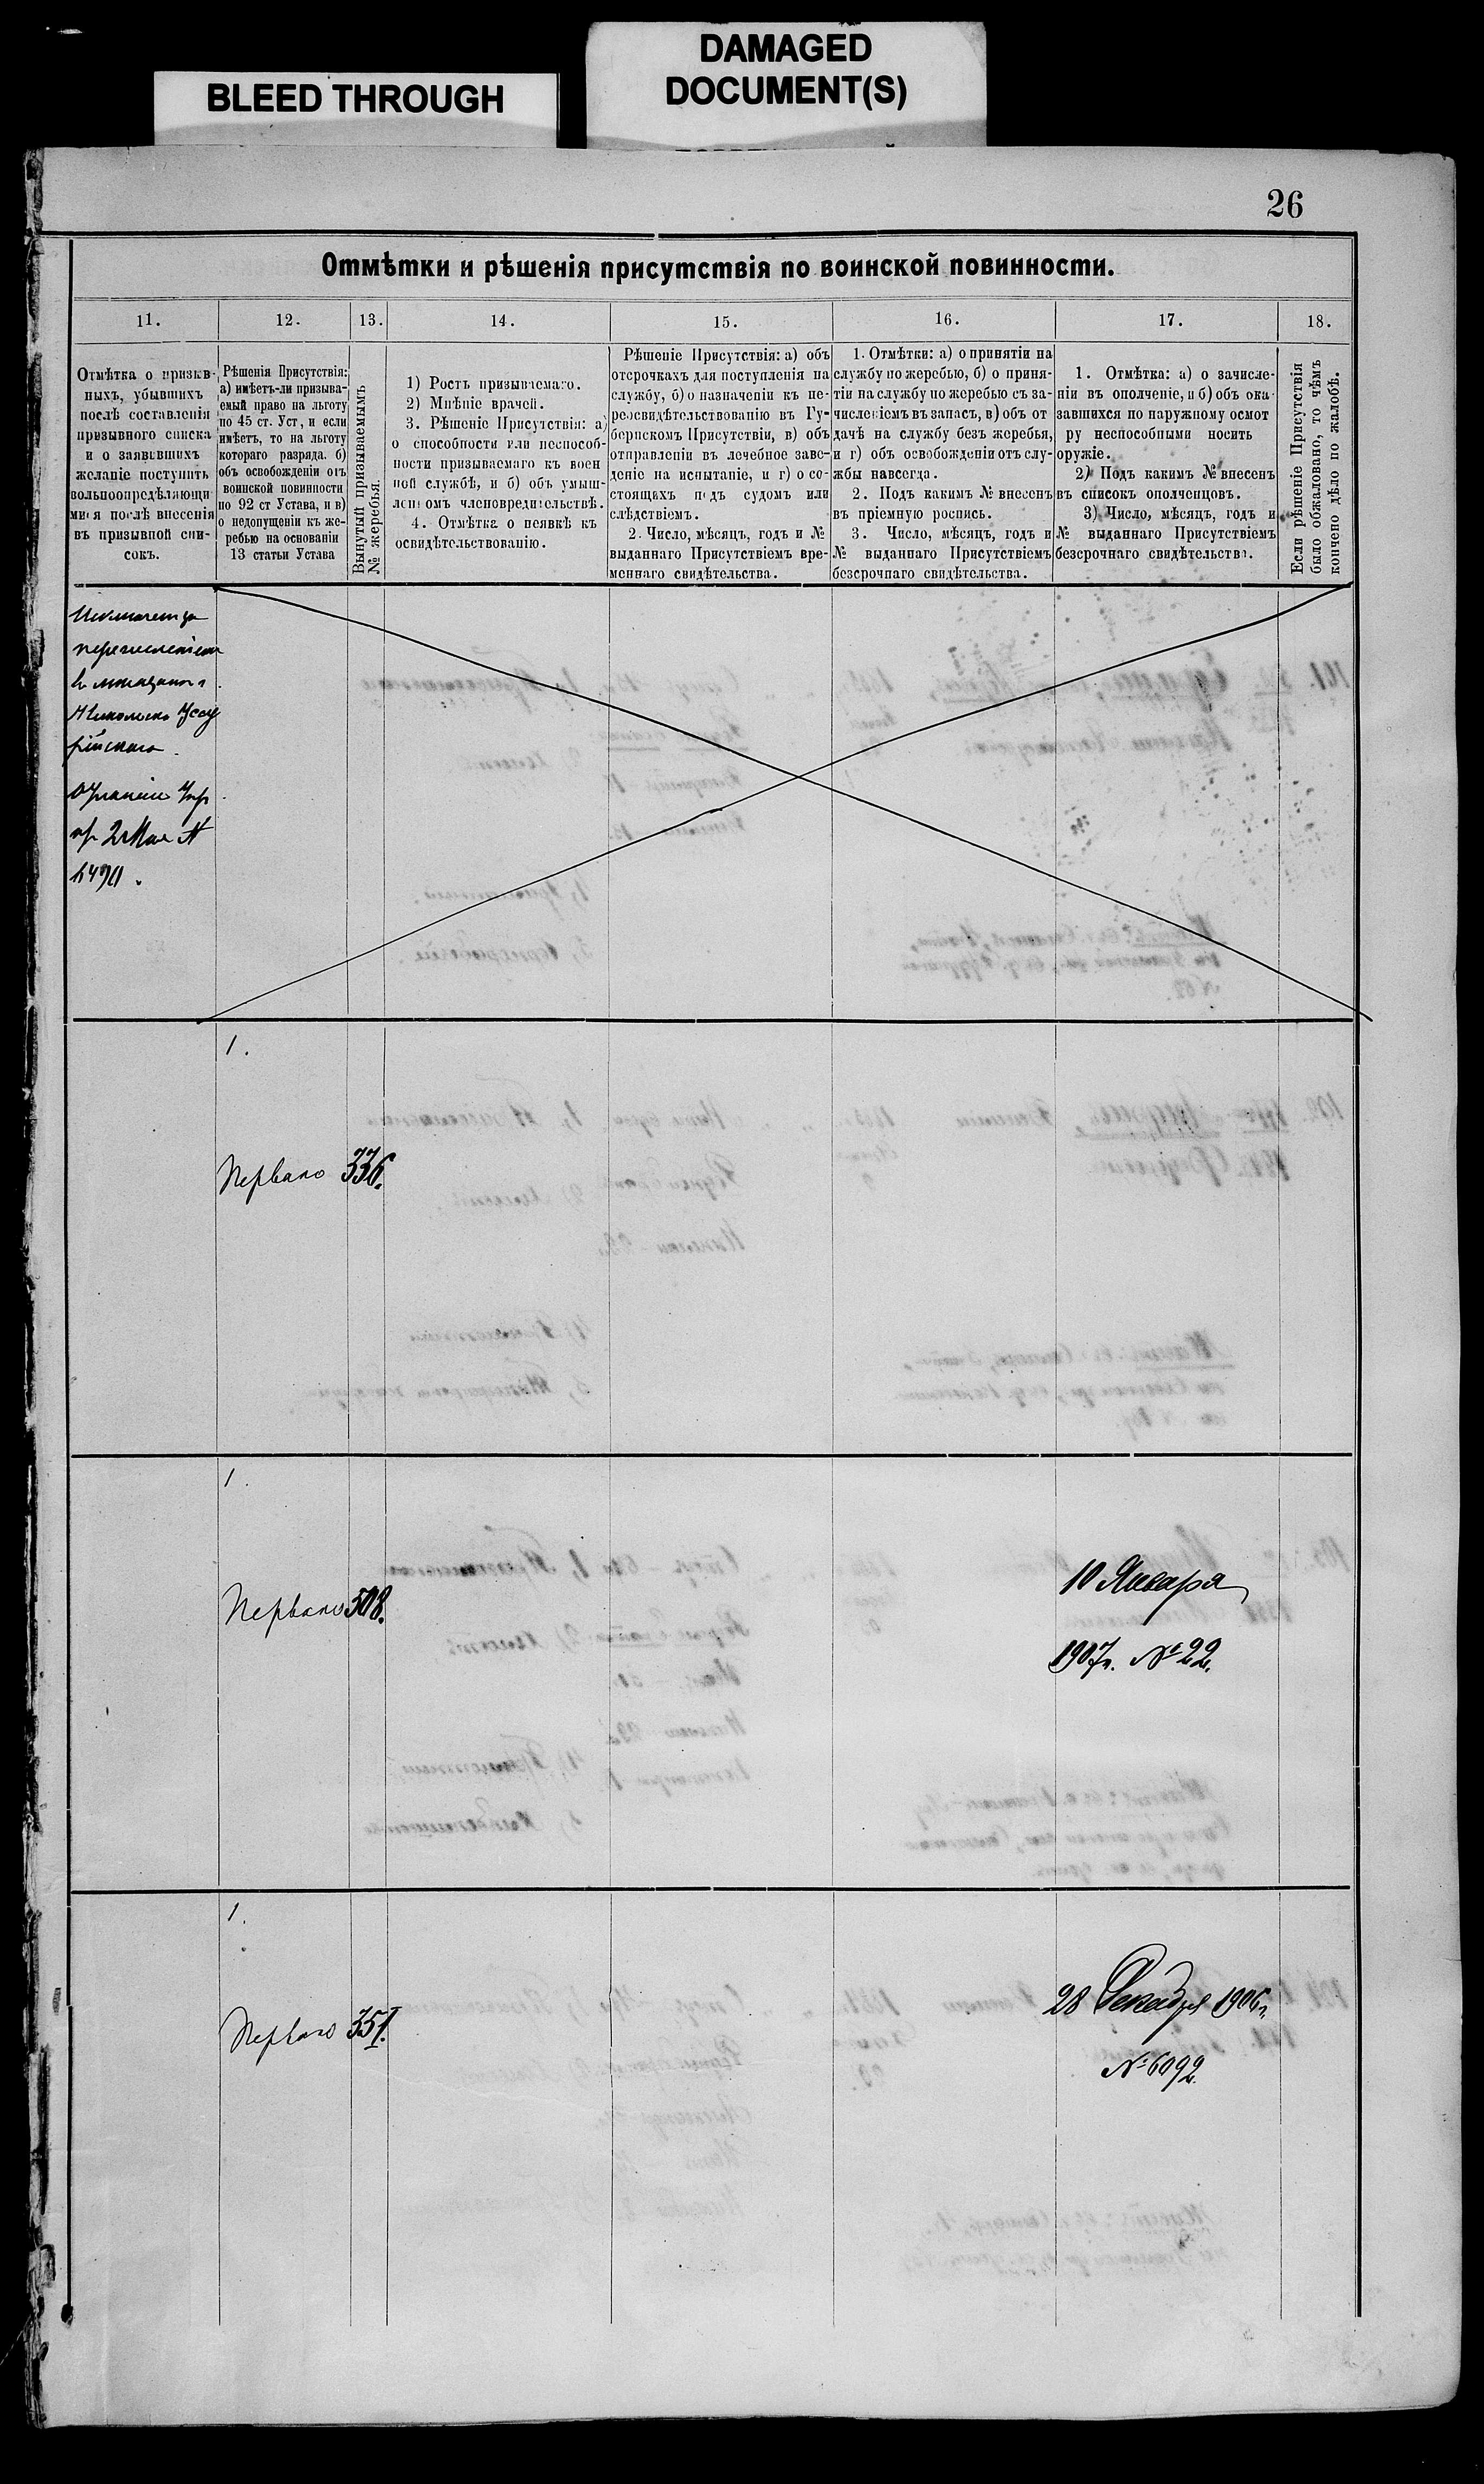 BLEED THROUGH
DAMAGED
DOCUMENT(S)
26
Отмѣтки и рѣшенія присутствія по воинской повинности.
11.
12.
13.
14.
15.
16.
17.
18.
Отмѣтка о призыв-
ныхъ, убывшихъ
послѣ составленія
призывного списка
и о заявившихъ
желаніе поступить
вольноопредѣляющи
мися послѣ внесенія
въ призывной спи-
сокъ.
Рѣшенія Присутствія:
а) имѣетъ-ли призыва-
емый право на льготу
по 45 ст. Уст, и если
имѣетъ, то на льготу
котораго разряда. б)
объ освобожденіи отъ
воинской повинности
по 92 ст Устава, и в)
о недопущеніи къ же-
ребью на основаніи
13 статьи Устава
Вынутый призываемымъ
№ жеребья.
1) Ростъ призываемаго.
2) Мнѣніе врачей.
3. Рѣшеніе Присутствія: а)
о способности или неспособ-
ности призываемаго къ воен
ной службѣ, и б) объ умыш-
леномъ членовредительствѣ.
4. Отмѣтка о неявкѣ къ
освидѣтельствованію.
Рѣшеніе Присутствія: а) объ
отсрочкахъ для поступленія на
службу, б) о назначеніи къ пе-
реосвидѣтельствованію въ Гу-
бернскомъ Присутствіи, в) объ
отправленіи въ лечебное заве-
деніе на испытаніе, и г) о со-
стоящахъ подъ судомъ или
слѣдствіемъ.
2. Число, мѣсяцъ, годъ и №
выданнаго Присутствіемъ вре-
меннаго свидѣтельства.
1. Отмѣтки: а) о принятіи на
службу по жеребью, б) о приня-
тіи на службу по жеребью съ за-
численіемъ въ запасъ, в) объ от
дачѣ на службу безъ жеребья,
и г) объ освобожденіи отъ слу-
жбы навсегда.
2. Подъ какимъ № внесенъ
въ пріемную роспись.
3. Число, мѣсяцъ, годъ и
№ выданнаго Присутствіемъ
безсрочнаго свидѣтельства.
1. Отмѣтка: а) о зачисле-
ніи въ ополченіе, и б) объ ока-
завшихся по наружному осмот
ру неспособными носить
оружіе.
2) Подъ какимъ № внесенъ
въ списокъ ополченцовъ.
3) Число, мѣсяцъ, годъ и
№ выданнаго Присутствіемъ
безсрочнаго свидѣтельства.
Если рѣшеніе Присутствія
было обжаловано, то чѣмъ
кончено дѣло по жалобѣ.
перечисленіем
Никольско Уссу
рійскаго
2 Мая №
1.
Перваго 336.
1.
Перваго 508.
10 Января
1907г. № 22.
1.
Перваго 351.
28 Декабря 1906г.
№ 6092.